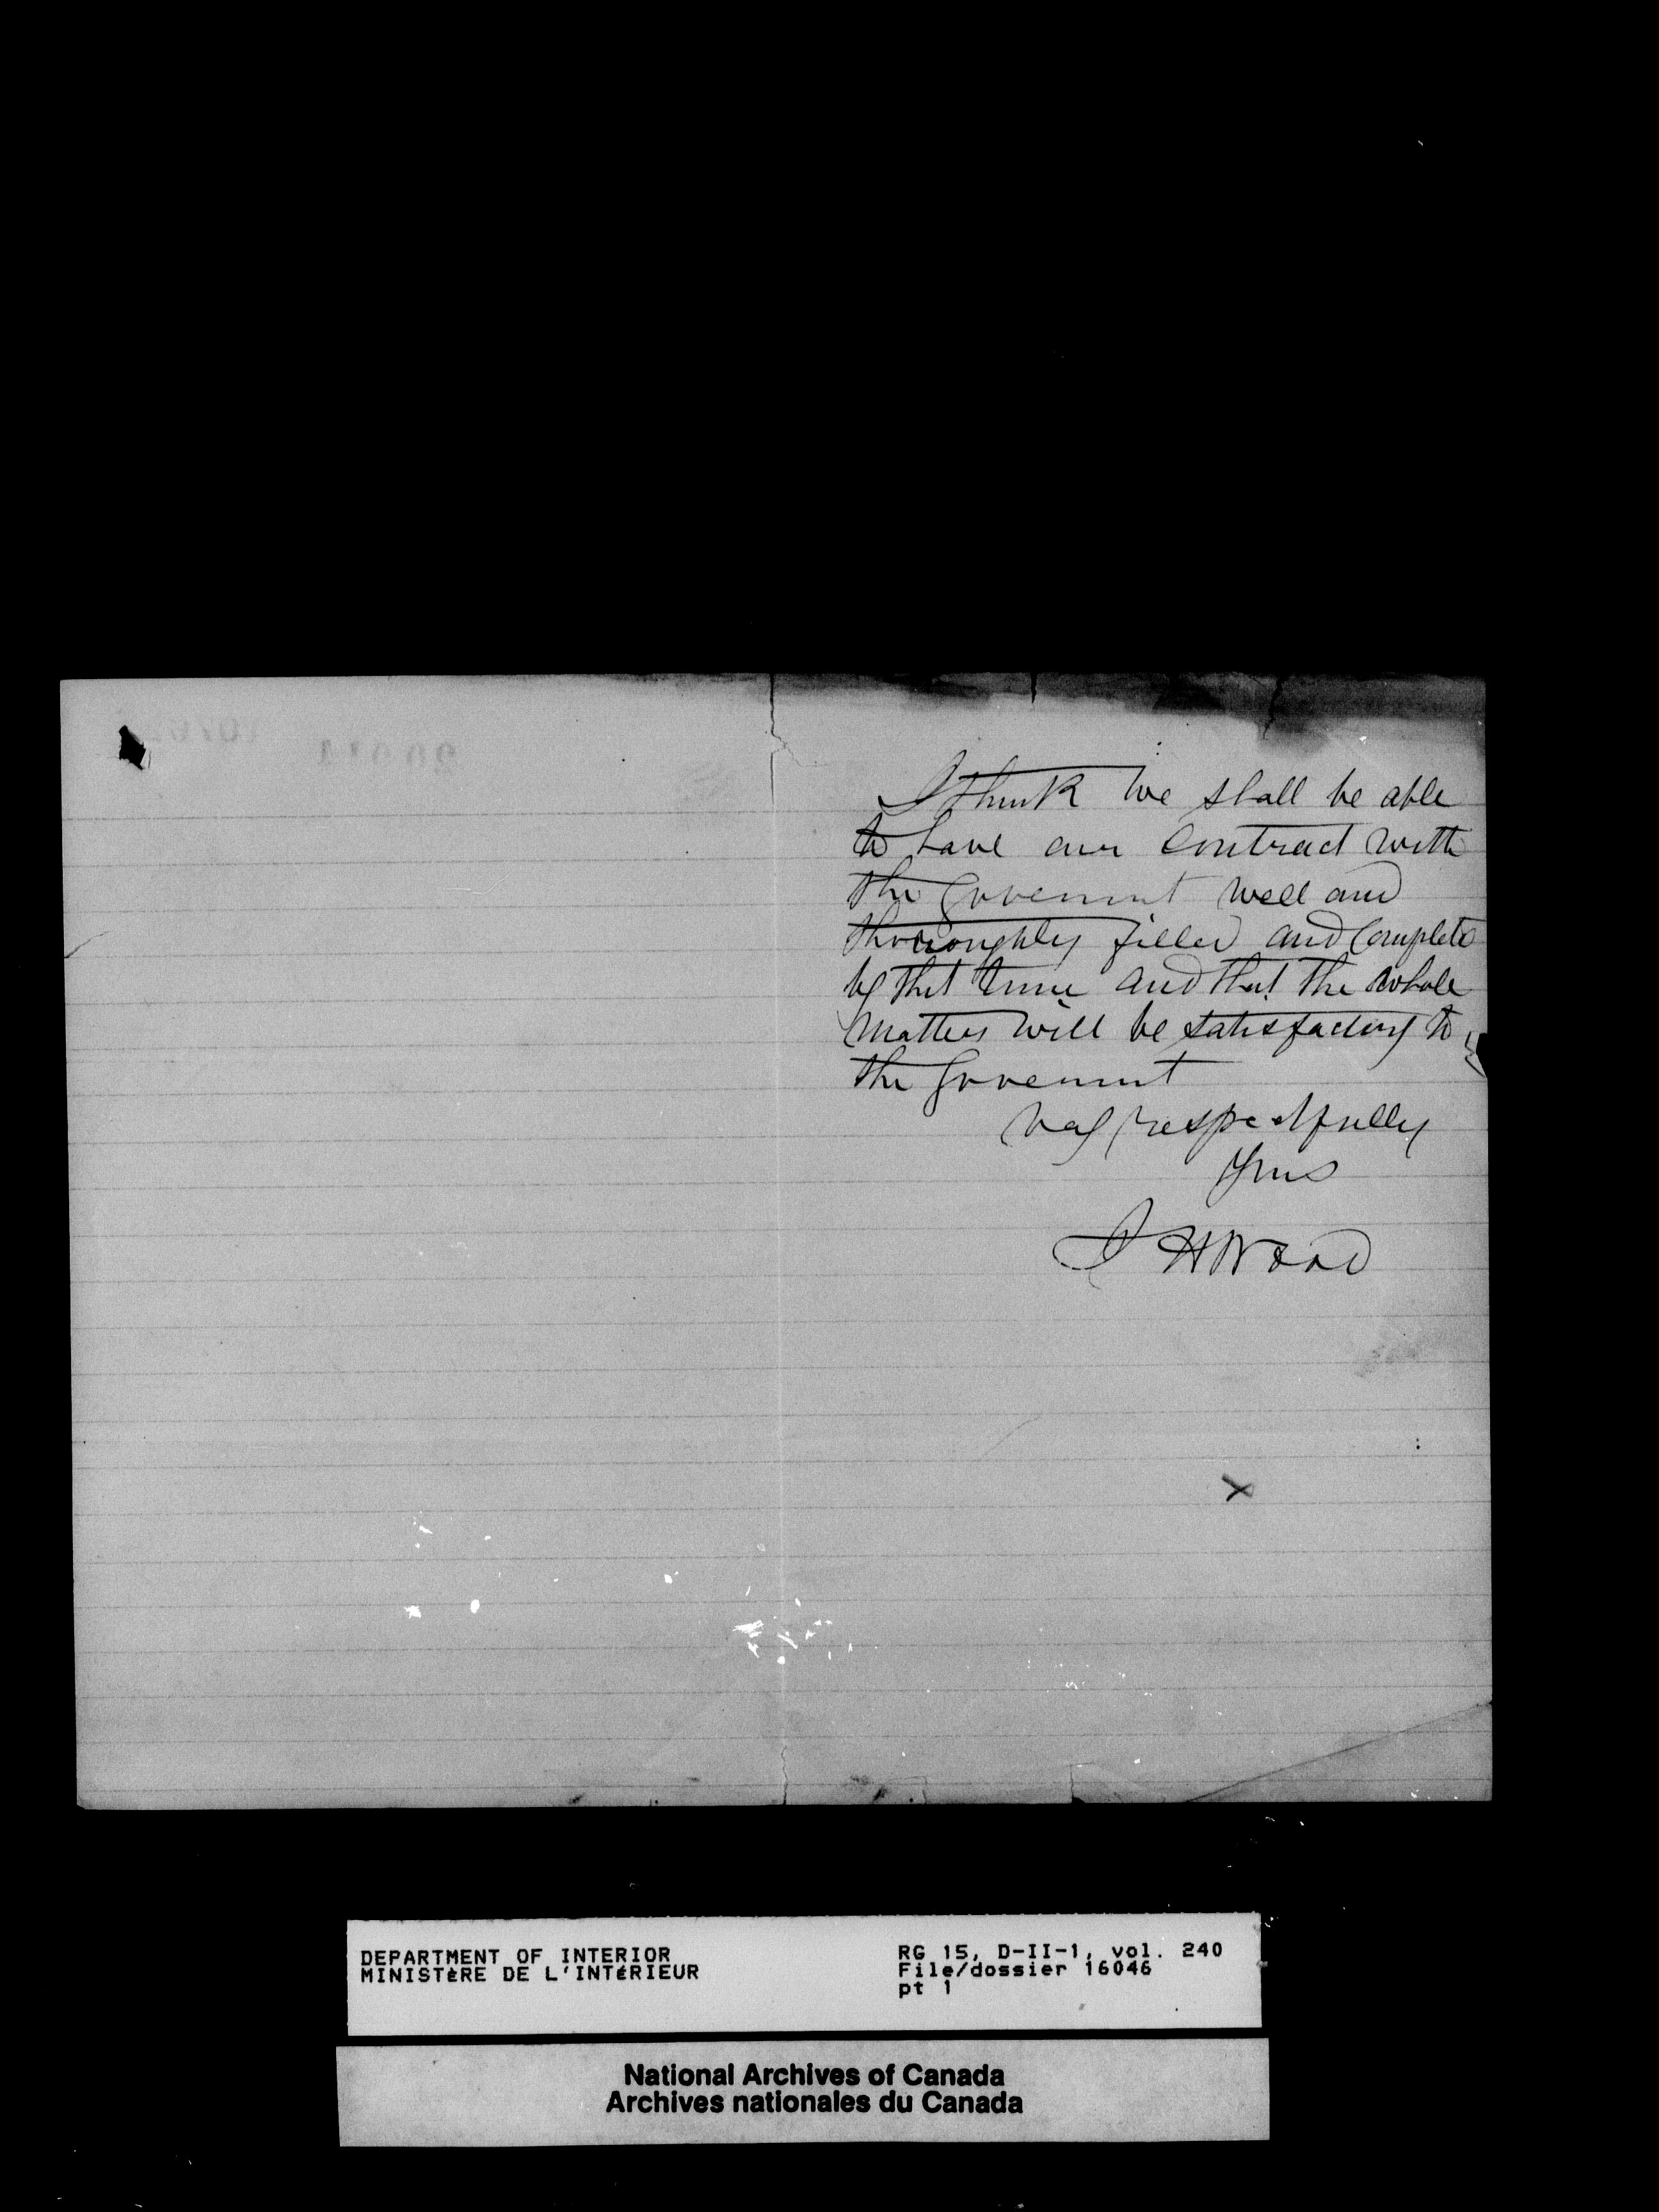 I think we shall be able
to have our Contract with
the Goverment well and
thoroughly filled and Complete
by that time and that the whole
matter will be satisfactory to
the Goverment
Very respectfully
Yours
S H Wood
DEPARTMENT OF INTERIOR
MINISTÈRE DE L'INTÉRIEUR
RG 15, D-II-1, vol. 240
File/dossier 16046
pt 1
National Archives of Canada
Archives nationales du Canada